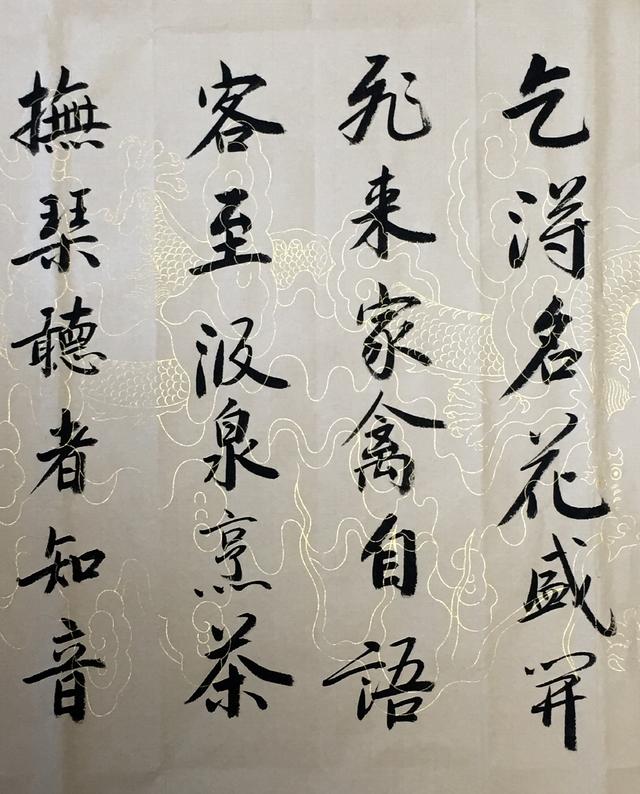 乞得名花盛開
飛來家禽自語
客至汲泉烹茶
撫琴聽者知音